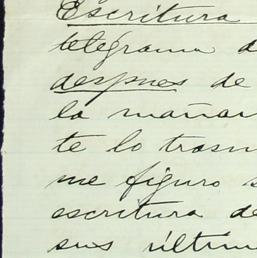 Escritura
telegrama d
despues de
la mañan
te lo trasm
me figuro s
escritura de
sus últim